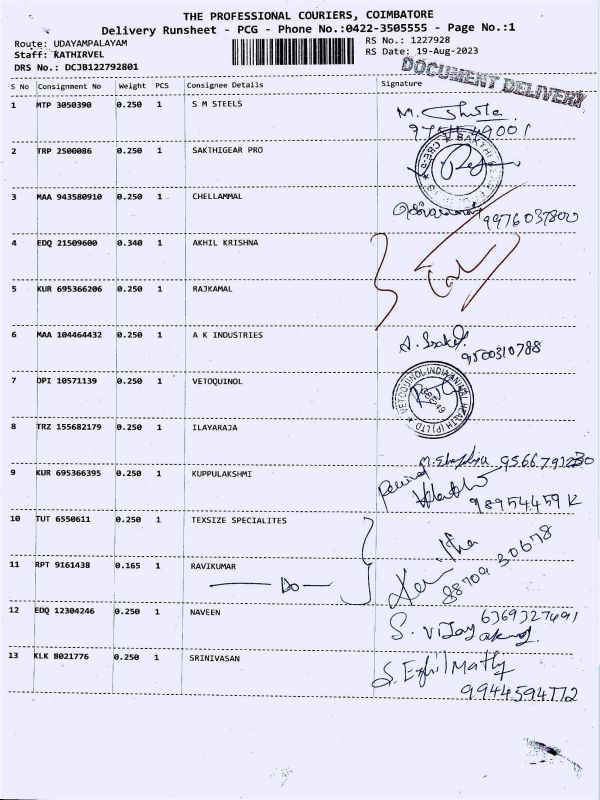 THE PROFESSIONAL COURIERS, COIMBATORE
Delivery Runsheet - PCG - Phone No.:0422-3505555 - Page No.:1
Route: UDAYAMPALAYAM RS No.: 1227928
Staff: KATHIRVEL RS Date: 19-Aug-2023
DRS No.: DCJB122792801
DOCUMENT DELIVERY
S No Consignment No Weight PCS Consignee Details Signature
1 MTP 3050390 0.250 1 S M STEELS
2 TRP 2500086 0.250 1 SAKTHIGEAR PRO
3 MAA 943580910 0.250 1 CHELLAMMAL
9976037800
4 EDQ 21509600 0.340 1 AKHIL KRISHNA
5 KUR 695366206 0.250 1 RAJKAMAL
6 MAA 104464432 0.250 1 A K INDUSTRIES
9500310788
7 DPI 10571139 0.250 1 VETOQUINOL
VETOQUINOL INDIA ANIMAL HEALTH (P) LTD
8 TRZ 155682179 0.250 1 ILAYARAJA
9 KUR 695366395 0.250 1 KUPPULAKSHMI
10 TUT 6550611 0.250 1 TEXSIZE SPECIALITES
11 RPT 9161438 0.165 1 RAVIKUMAR
Do
8870930678
12 EDQ 12304246 0.250 1 NAVEEN
6369327491
S. Vijay
13 KLK 8021776 0.250 1 SRINIVASAN
S. Ezhilmathy
9944594772